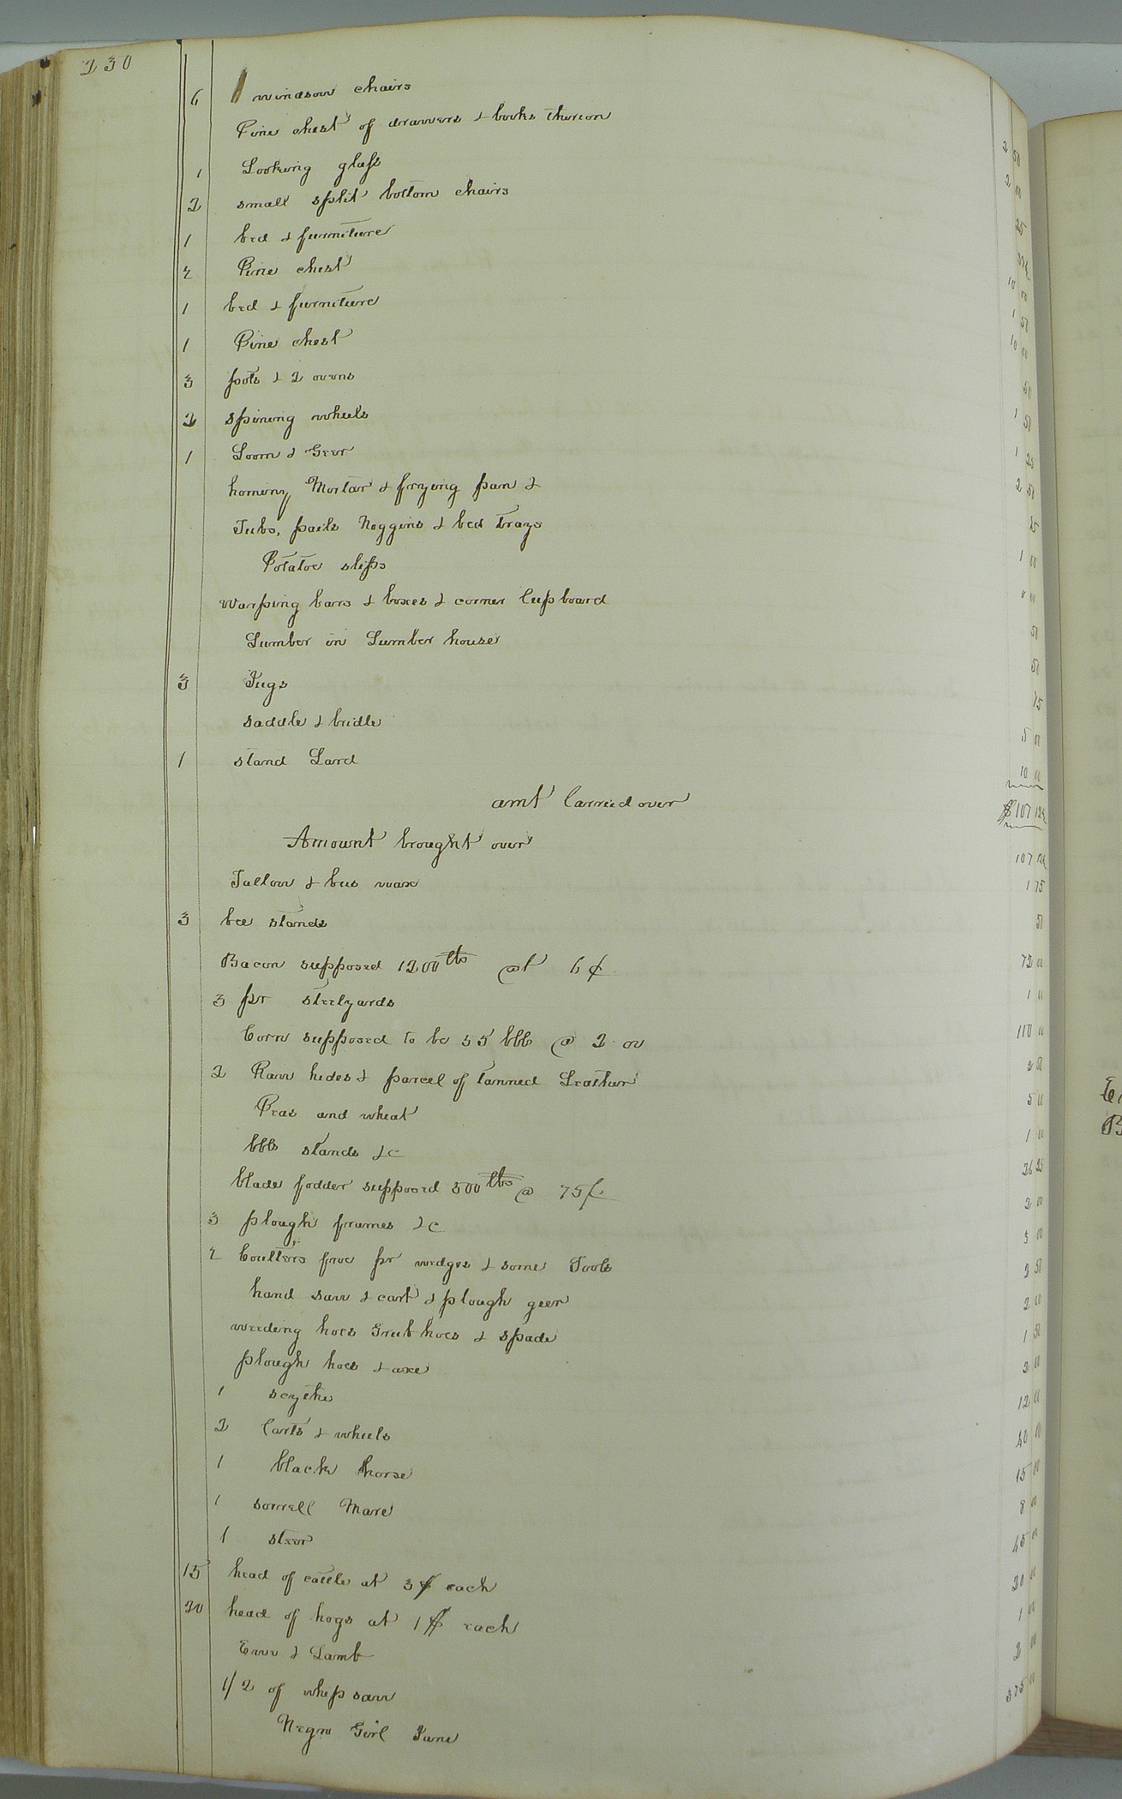 230
6 windsow chairs
Pine chest of drawers & books thereon 2 50
1 Looking glass 2 00
2 small split bottom chairs 25
1 bed & furniture 10 00
2 Pine chest 1 50
1 bed & furniture 10 00
1 Pine chest 50
3 pots & 2 ovens 1 50
2 spining wheels 1 25
1 Loom & Gear 2 50
hominy Mortar & frying pan &
Tubs, pails Noggins & bed trays 1 00
Potatoe slips
Warping bars & boxes & corner Cupboard 50
Lumber in Lumber house 50
3 Jugs 15
saddle & bridle
1 stand Lard 10 00
amt Carried over $107 12½
Amount brought over 107 12½
Tallow & bees wax 1 75
3 bee stands 50
Bacon supposed 1200 lbs @ 6¢ 72 00
3 pr steelyards 1 00
Corn supposed to be 55 bbls @ 2 00 110 00
2 Raw hides & parcel of tanned Leather 2 50
Peas and wheat 5 00
bbls stands &c 1 00
blade fodder supposed 3500 lbs @ 75¢ 26 25
3 plough frames &c 2 00
2 Coulters froe pr wedges & some Tools 3 00
hand saw & cart & plough geer 2 50
weeding hoes Grub hoes & spade 2 00
plough hoes & axe 1 50
1 scythe 2 00
2 Carts & wheels 12 00
1 black horse 40 00
1 sorrell Mare 15 00
1 steer 8 00
15 head of cattle at 3$ each 45 00
20 head of hogs at 1$ each 20 00
Ewe & Lamb 1 00
1/2 of whip saw 2 00
Negro Girl June 375 00